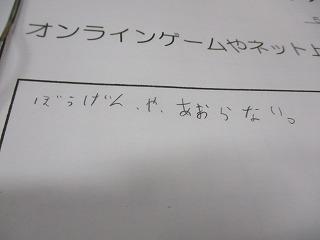 オンラインゲームやネット上
ぼうげん、や、あおらない。